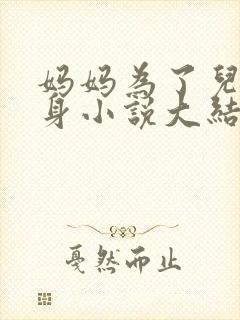 妈妈為了兒
身小說大結
戛然而止